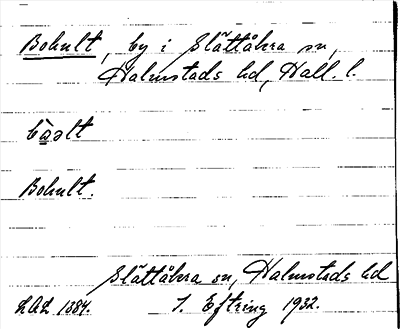 Bohult, by i Slättåkra sn,
Halmstads hd, Hall. l.
Bohult.
Slättåkra sn, Halmstads hd
LAL 1384. J. Eftring 1932.